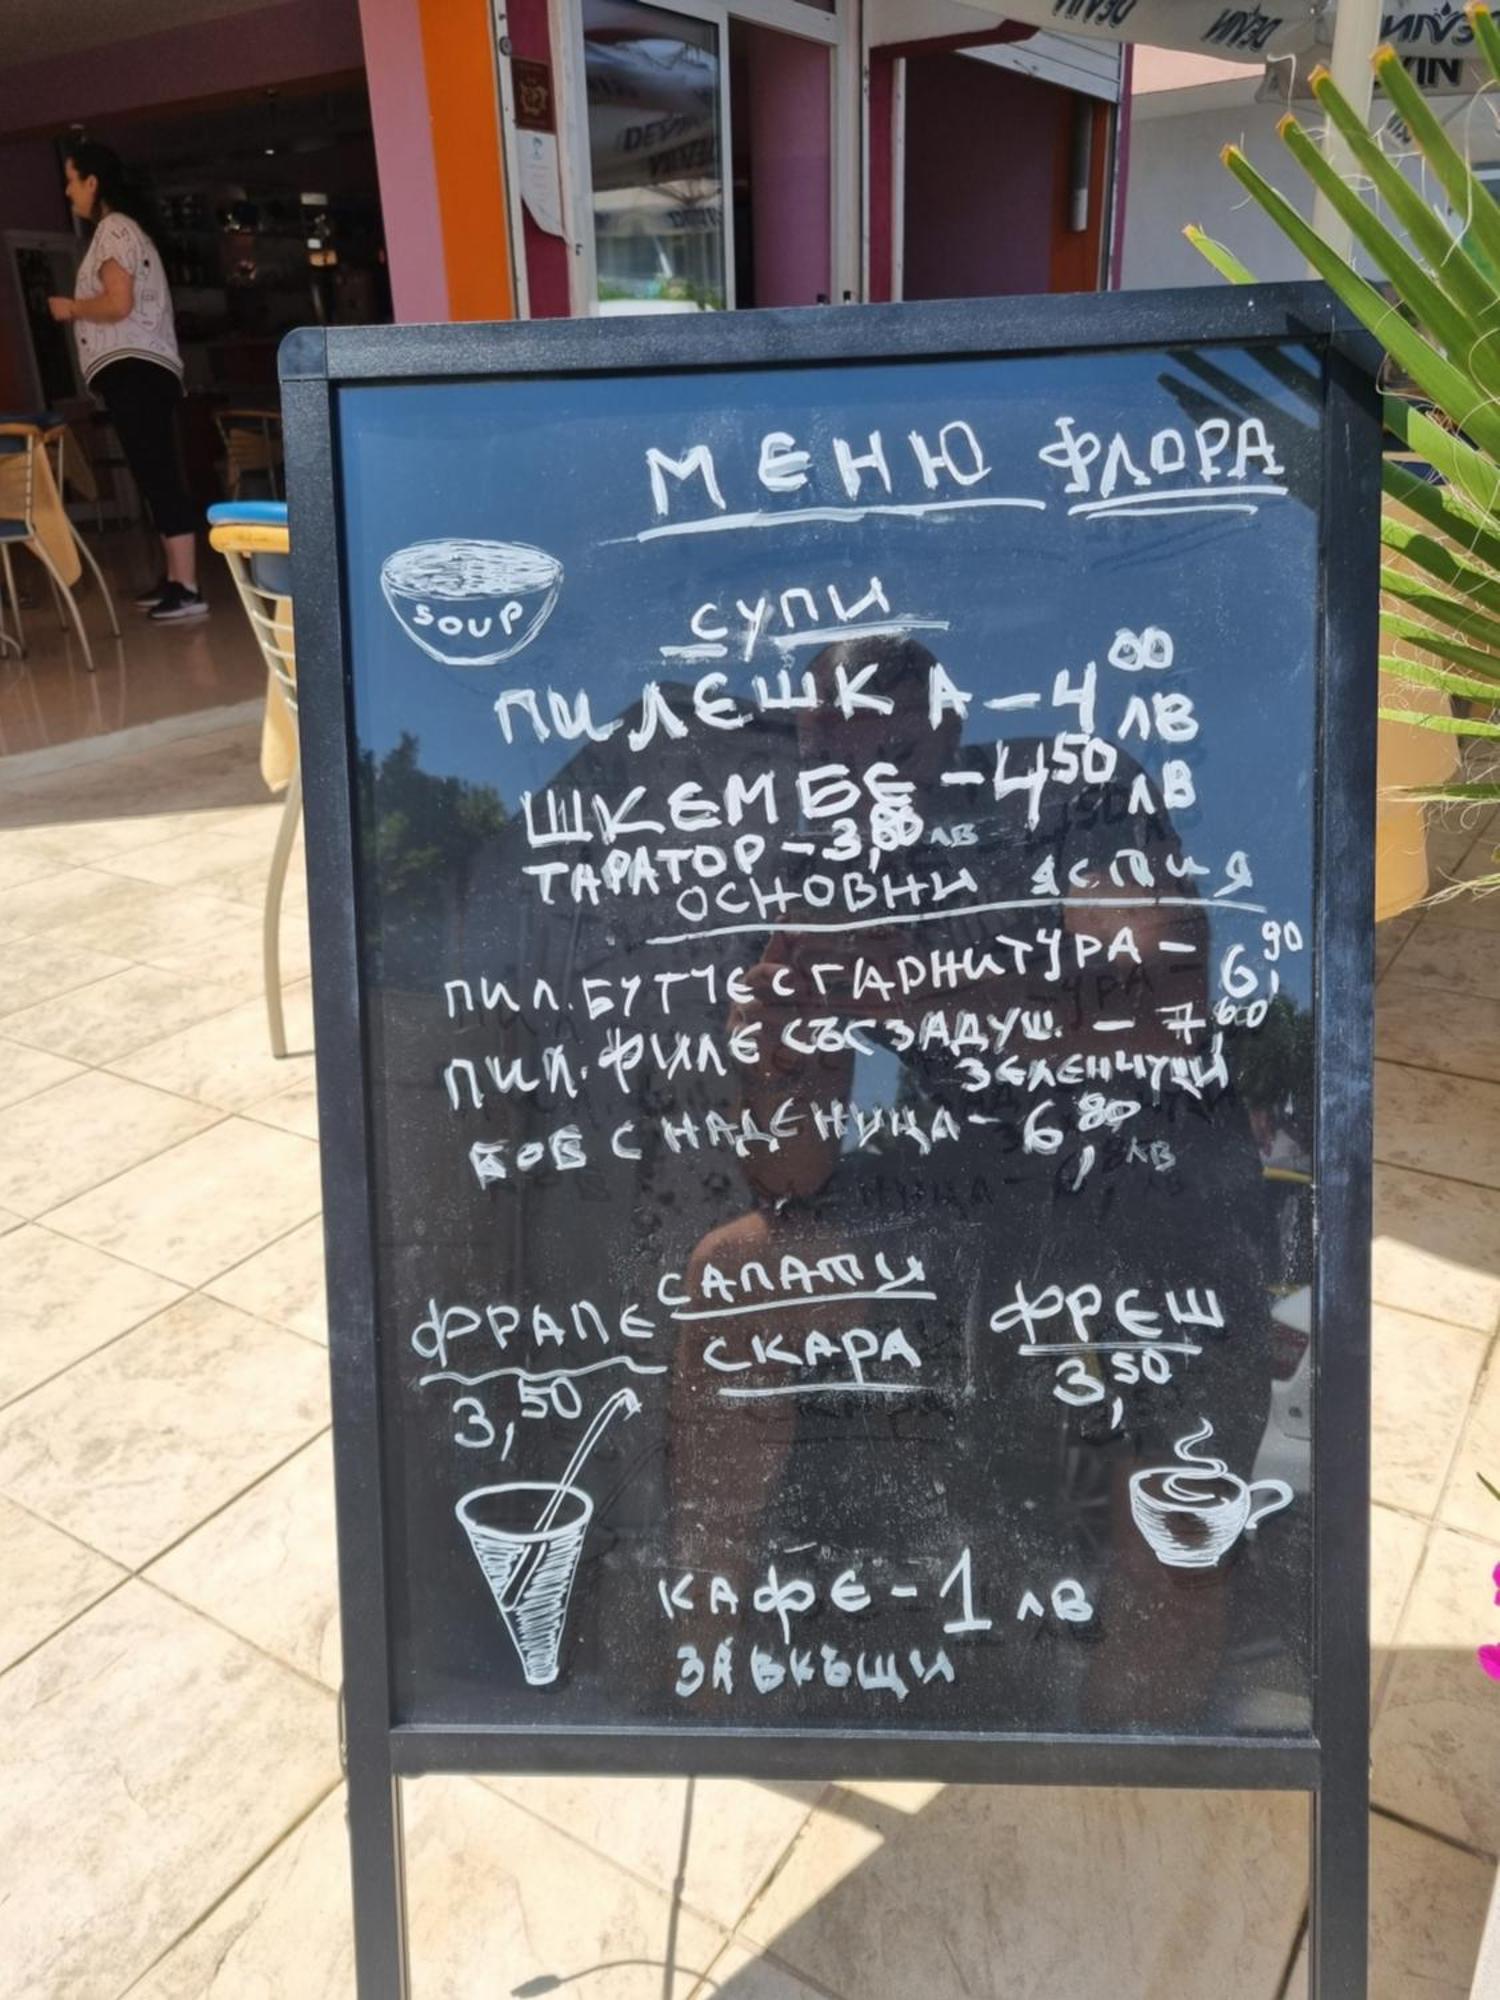 DEVIN
МЕНЮ ФЛОРА
SOUP
СУПИ
ПИЛЕШКА - 4 00 ЛВ
ШКЕМБЕ - 4 50 ЛВ
ТАРАТОР - 3,80 ЛВ
ОСНОВНИ ЯСТИЯ
ПИЛ. БУТЧЕ С ГАРНИТУРА - 6,90
ПИЛ. ФИЛЕ СЪС ЗАДУШ. - 7,60
ЗЕЛЕНЧУЦИ
БОБ С НАДЕНИЦА - 6,80 ЛВ
САЛАТИ
ФРАПЕ СКАРА ФРЕШ
3,50 3,50
КАФЕ - 1 ЛВ
ЗА ВКЪЩИ